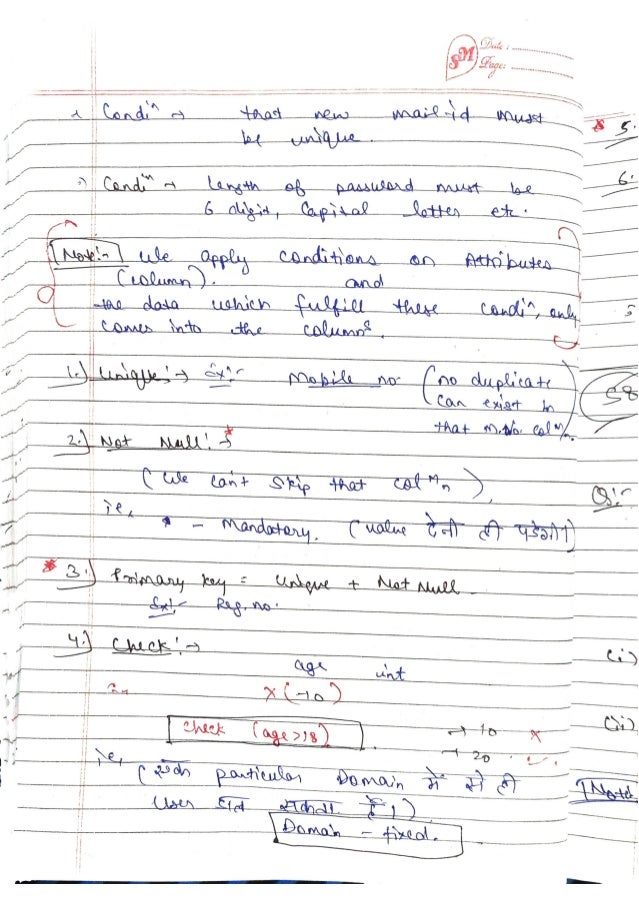 SM Date : ............
Page: ............
Condiⁿ → that new mail-id must
be unique.
Condiⁿ → length of password must be
6 digit, Capital letter etc.
Note:- We apply conditions on Attributes
(column). and
the data which fulfill these condiⁿ, only
comes into the columns.
1.) Unique:→ Ex:- Mobile no. (no duplicate
can exist in
that M.No. colᵐn.
2.) Not Null:→ *
(We can't skip that colᵐn).
ie, * - Mandatory. (value देनी ही पड़ेगी।)
* 3.) Primary key = Unique + Not Null.
Ex:- Reg. no.
4.) Check:→
age int
x (-10)
check (age>18) → 10 x
→ 20 ✓
ie, (एक particular Domain में से ही
User सकता है।)
Domain - fixed.
* 5.
6.
58
Q:-
(i)
(ii)
Note